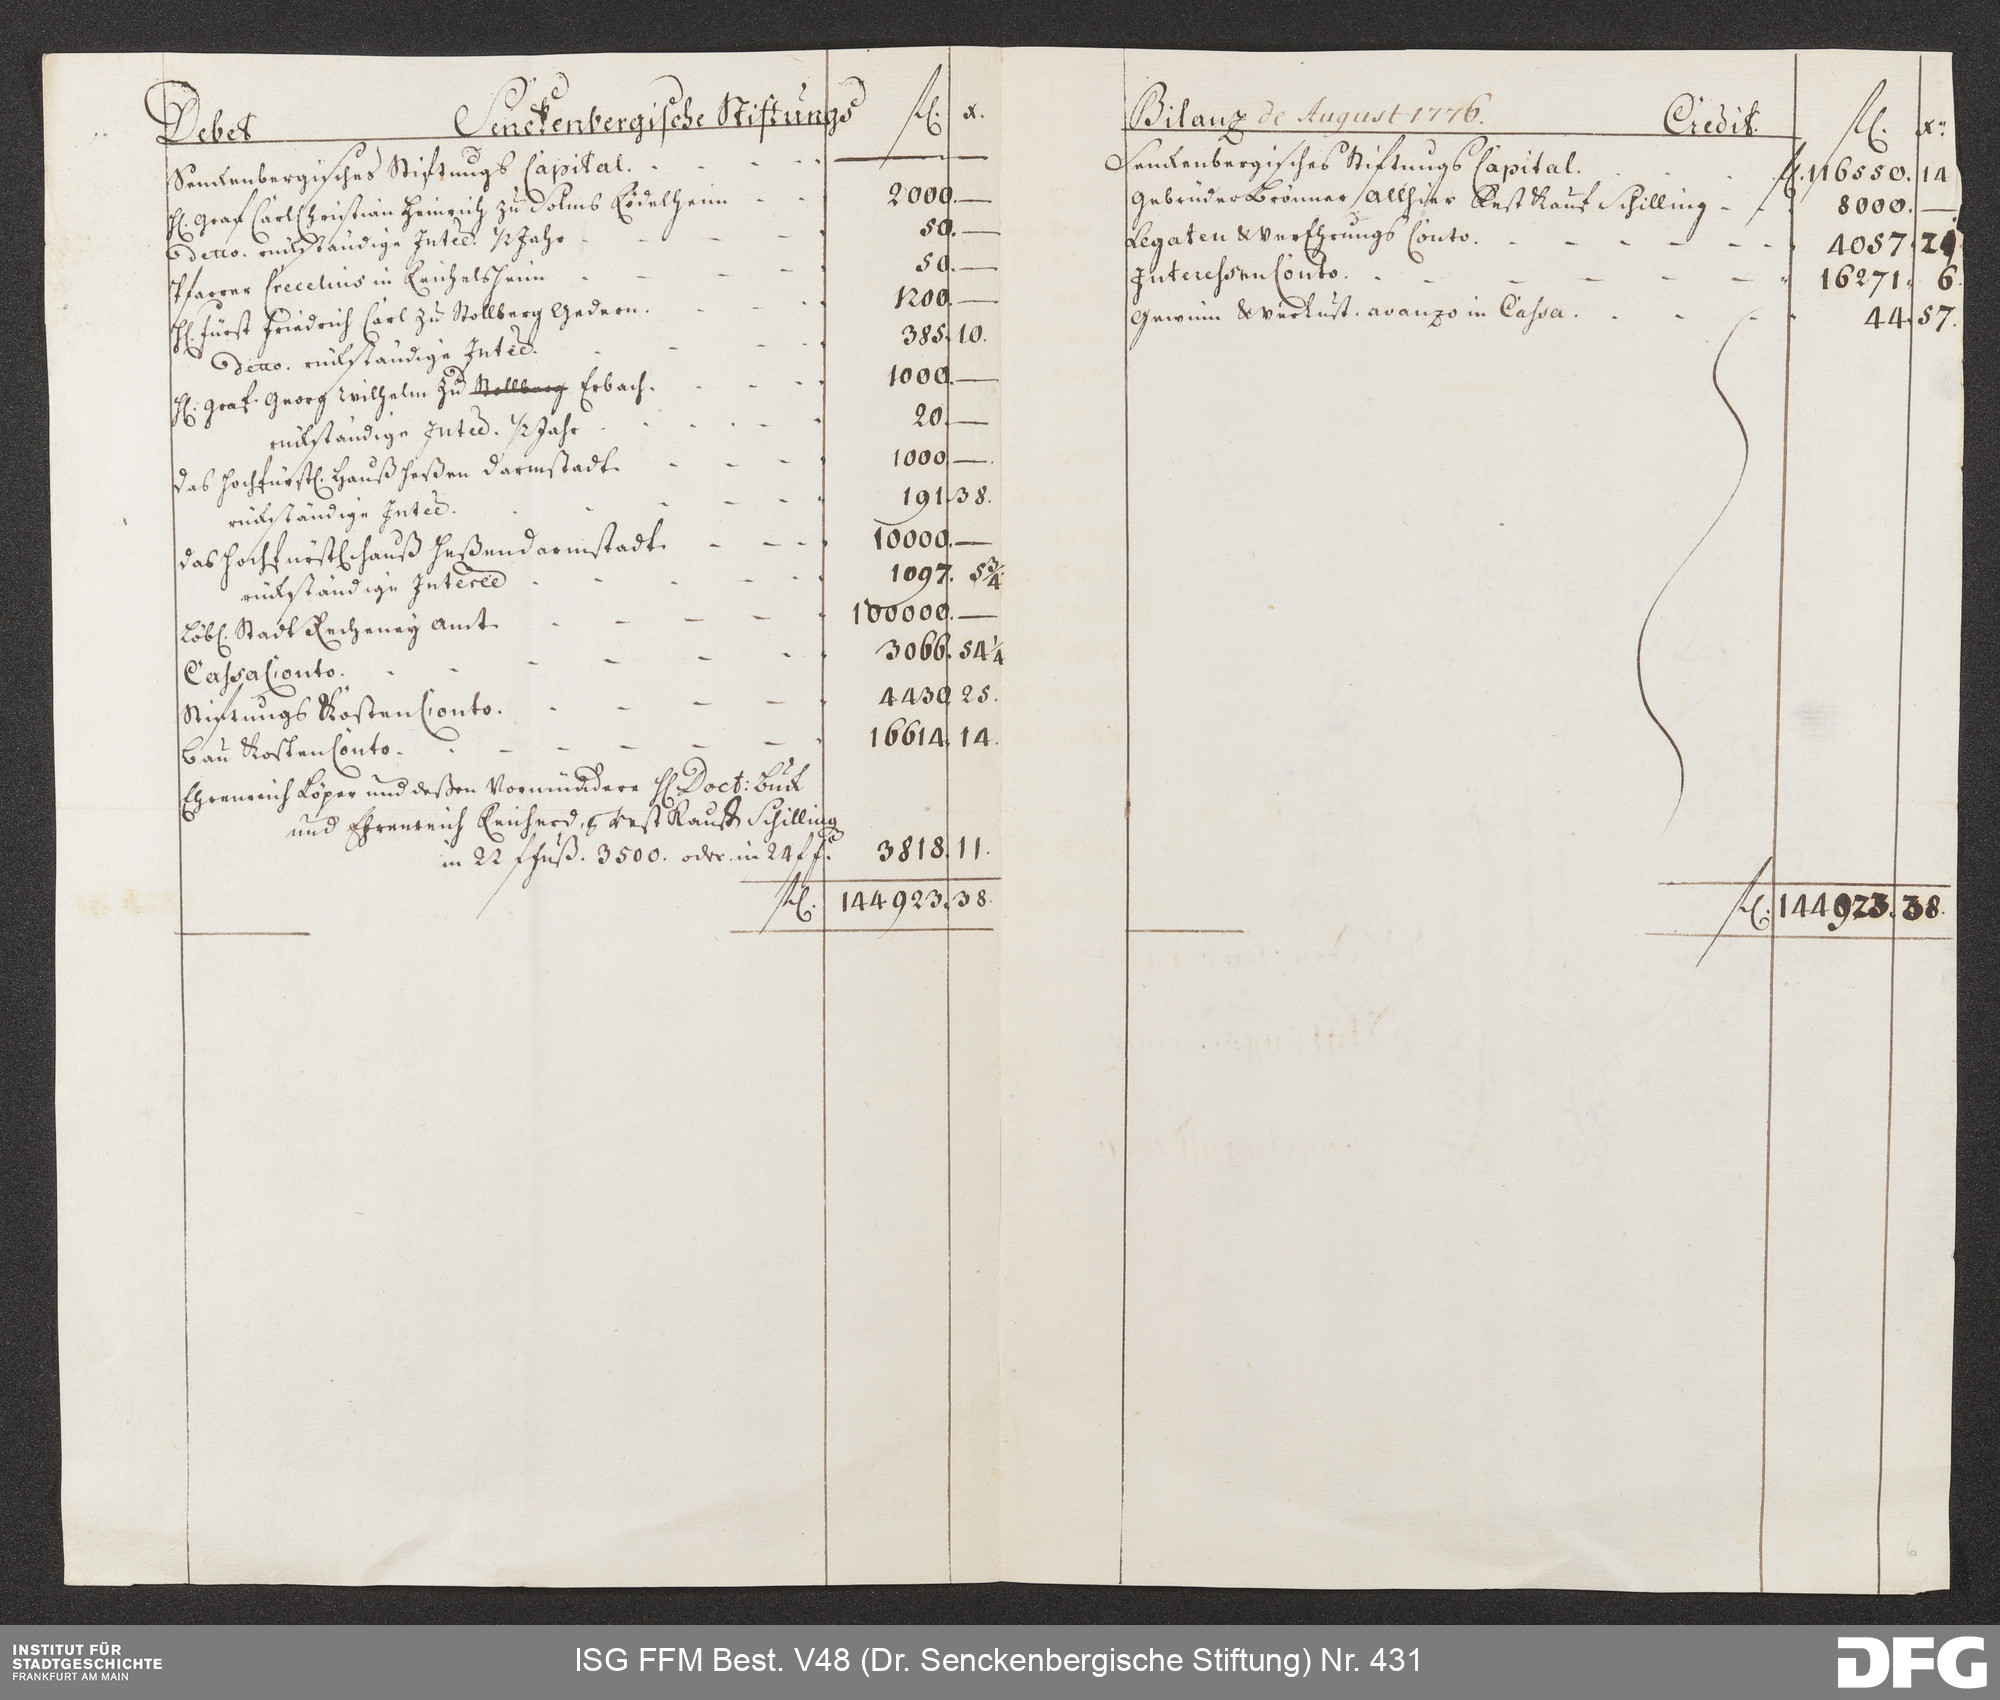 Debet Senckenbergische Stiftungs fl. x.
Senckenbergisches Stiftungs Capital. — —
H. Graf Carl Christian Heinrich zu Solms Rödelheim - - 2000. —
detto. rückständige Intee. 1/2 Jahr - - - - 50. —
Pfarrer Crecelius in Reichelsheim - - - - 50. —
H. Fürst Friedrich Carl zu Stollberg Gedern. - - - 1200. —
detto. rückständige Intee. - - - - 385. 10.
H. Graf Georg Wilhelm zu Stollberg Erbach. - - - 1000. —
rückständige Intee. 1/2 Jahr - - - - 20. —
das Hochfürstl. Hauß Heßen Darmstadt - - - 1000. —
rückständige Intee. - - - - 191. 38.
das Hochfürstl. Hauß Heßendarmstadt. - - - 10000. —
rückständige Interee - - - - 1097. 5 3/4
Löbl. Stadt Recheney Amt. - - - - 100000. —
Cassa Conto. - - - - 3066. 54 1/4
Stiftungs Kosten Conto. - - - - 4430. 25.
Bau Kosten Conto. - - - - 16614. 14.
Ehrenreich Löper und deßen Vormündere H. Doct: Buck
und Ehrenreich Reichard, Rest Kauf Schilling
in 22 f fuß. 3500. oder in 24 f f. 3818. 11.
fl. 144923. 38.
Bilanz de August 1776. Credit. fl. xr.
Senckenbergisches Stiftungs Capital. - - - fl. 116550. 14
Gebrüder Brönner allhier Rest Kauf Schilling - - 8000. —
Legaten & Verehrungs Conto. - - - - 4057.
Interessen Conto. - - - - 16271. 6.
Gewinn & Verlust. avanzo in Cassa. - - - 44. 57.
fl. 144923. 38.
6
INSTITUT FÜR
STADTGESCHICHTE
FRANKFURT AM MAIN
ISG FFM Best. V48 (Dr. Senckenbergische Stiftung) Nr. 431
DFG